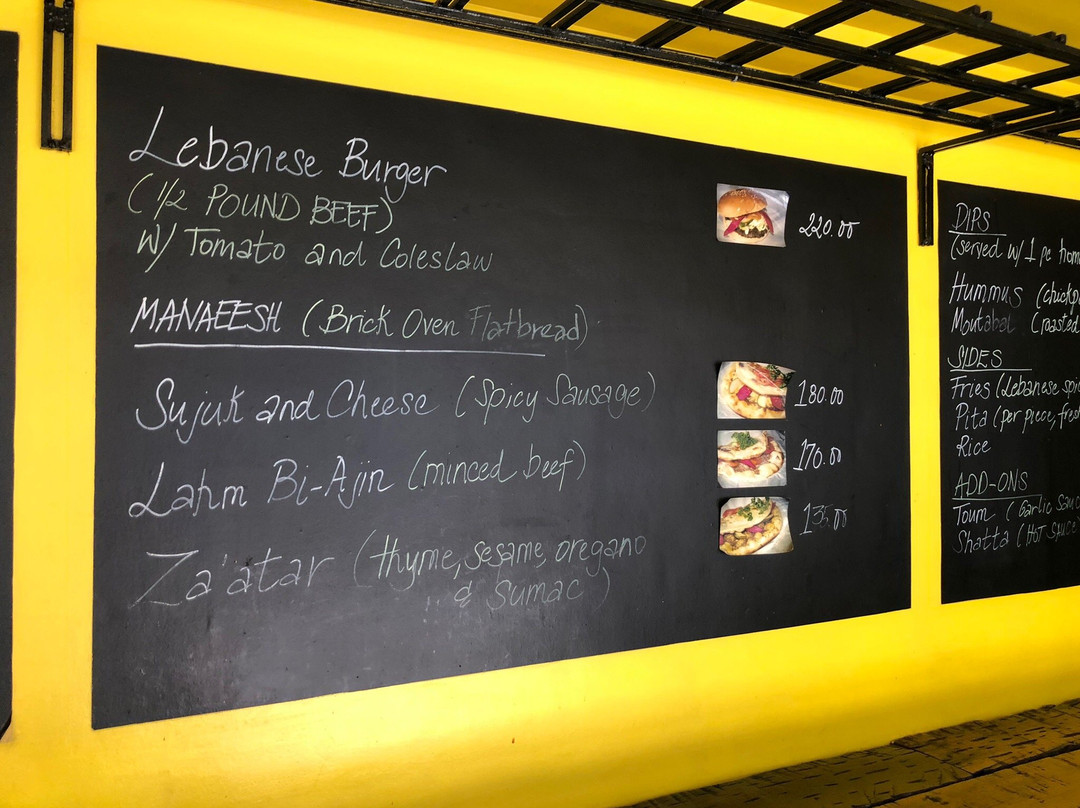 Lebanese Burger
(1/2 POUND BEEF)
W/ Tomato and Coleslaw
220.00
MANAEESH (Brick Oven Flatbread)
Sujuk and Cheese (Spicy Sausage)
180.00
Lahm Bi-Ajin (minced beef)
170.00
Za'atar (thyme, sesame, oregano
& Sumac)
135.00
DIPS
(served w/ 1 pc
Hummus
Moutabal (roasted
SIDES
Fries (Lebanese
Pita (per piece,
Rice
ADD-ONS
Toum (Garlic
Shatta (HOT